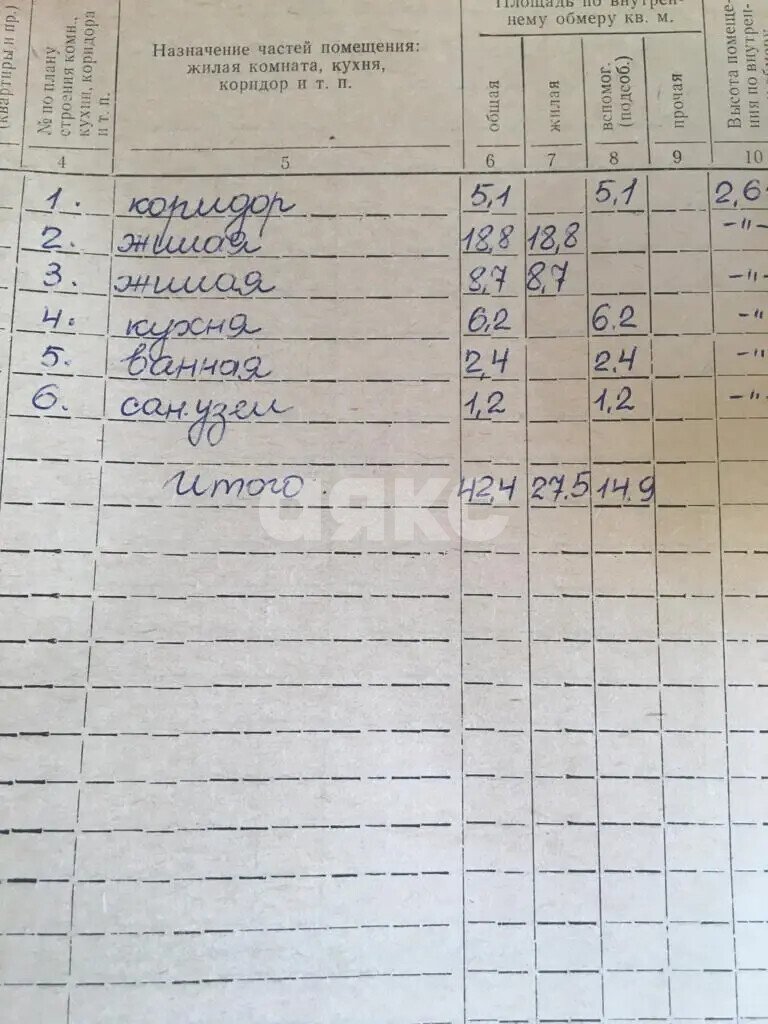 (квартиры и пр.)
№ по плану
строения комн.,
кухни, коридора
и т. п.
Назначение частей помещения:
жилая комната, кухня,
коридор и т. п.
Площадь по внутрен-
нему обмеру кв. м.
общая
жилая
вспомог.
(подсоб.)
прочая
Высота помеще-
ния по внутрен-
4 5 6 7 8 9 10
1. коридор 5,1 5,1 2,6
2. жилая 18,8 18,8 -"-
3. жилая 8,7 8,7 -"-
4. кухня 6,2 6.2 -"
5. ванная 2,4 2.4 -"
6. сан.узел 1,2 1,2 -"-
Итого. 42,4 27.5 14.9
аякс